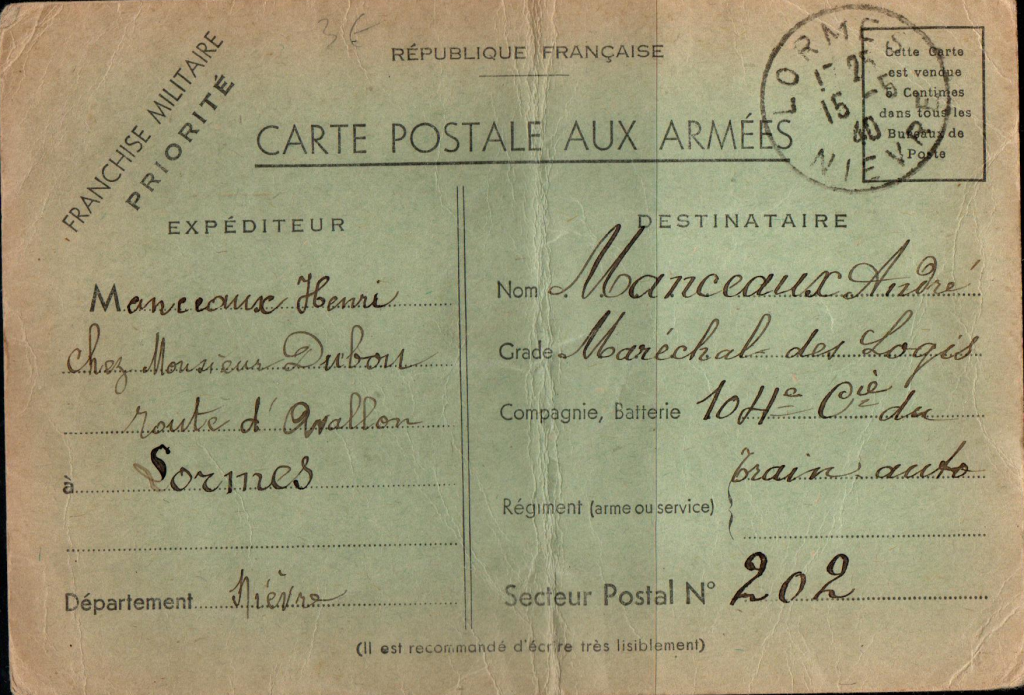 3€
FRANCHISE MILITAIRE
PRIORITÉ
RÉPUBLIQUE FRANÇAISE
CARTE POSTALE AUX ARMÉES
LORMES
25
15 -5
40
NIEVRE
Cette Carte
est vendue
Centimes
dans tous les
Bureaux de
Poste
EXPÉDITEUR
Manceaux Henri
chez Monsieur Dubou
route d'Avallon
à Lormes
Département Nièvre
DESTINATAIRE
Nom Manceaux André
Grade Maréchal des Logis
Compagnie, Batterie 104e Cie du
train auto
Régiment (arme ou service)
Secteur Postal N° 202
(Il est recommandé d'écrire très lisiblement)